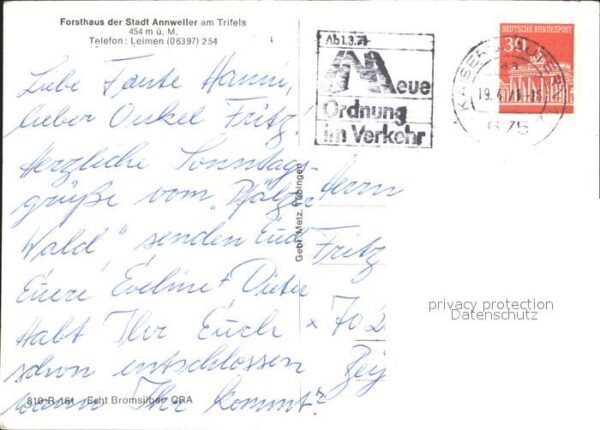 Forsthaus der Stadt Annweiler am Trifels
454 m ü. M.
Telefon: Leimen (06397) 254
Liebe Tante Hanni,
lieber Onkel Fritz!
Herzliche Sonntags-
grüße vom „Pfälzer
Wald" senden Euch
Euere Eveline + Dieter
Habt Ihr Euch
schon entschlossen
wann Ihr kommt?
810 R 161 Echt Bromsilber CRA
Gebr. Metz, Tübingen
Ab 1.3.71
Neue
Ordnung
im Verkehr
KAISERSLAUTERN
19.4.71
675
DEUTSCHE BUNDESPOST
30
Herrn
Fritz
x 702
privacy protection
Datenschutz